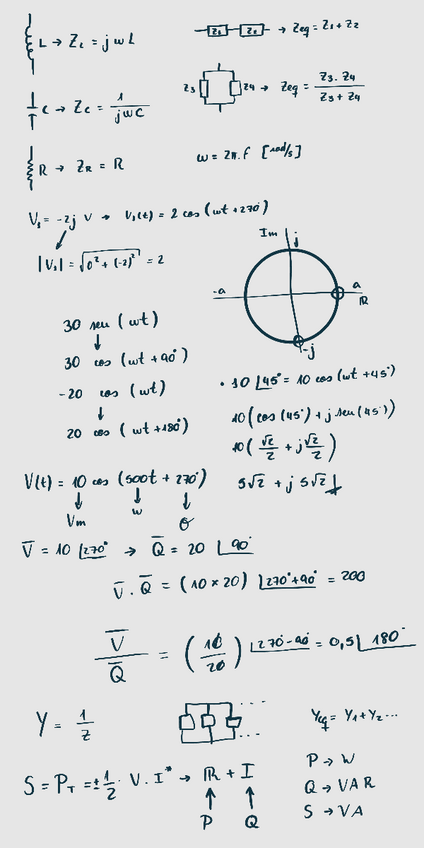 L → ZL = jωL
Z1 Z2 → Zeq = Z1 + Z2
C → Zc = 1/jωC
Z3 Z4 → Zeq = Z3 . Z4 / Z3 + Z4
R → ZR = R
ω = 2π.f [rad/s]
V1 = -2j V → V1(t) = 2 cos (ωt + 270°)
|V1| = √(0² + (-2)²) = 2
Im j
-a a
R
-j
30 sen (ωt)
↓
30 cos (ωt + 90°)
-20 cos (ωt)
↓
20 cos (ωt + 180°)
• 10 ∠45° = 10 cos (ωt + 45°)
10 (cos (45°) + j sen (45°))
10 (√2/2 + j√2/2)
5√2 + j 5√2
V(t) = 10 cos (500t + 270°)
↓ ↓ ↓
Vm ω θ
V̅ = 10 ∠270° → Q̅ = 20 ∠90°
V̅ . Q̅ = (10 × 20) ∠270° + 90° = 200
V̅/Q̅ = (10/20) ∠270° - 90° = 0,5 ∠180°
Y = 1/Z
Yeq = Y1 + Y2 ...
S = PT = ± 1/2 . V . I* → R + I
↑ ↑
P Q
P → W
Q → VAR
S → VA